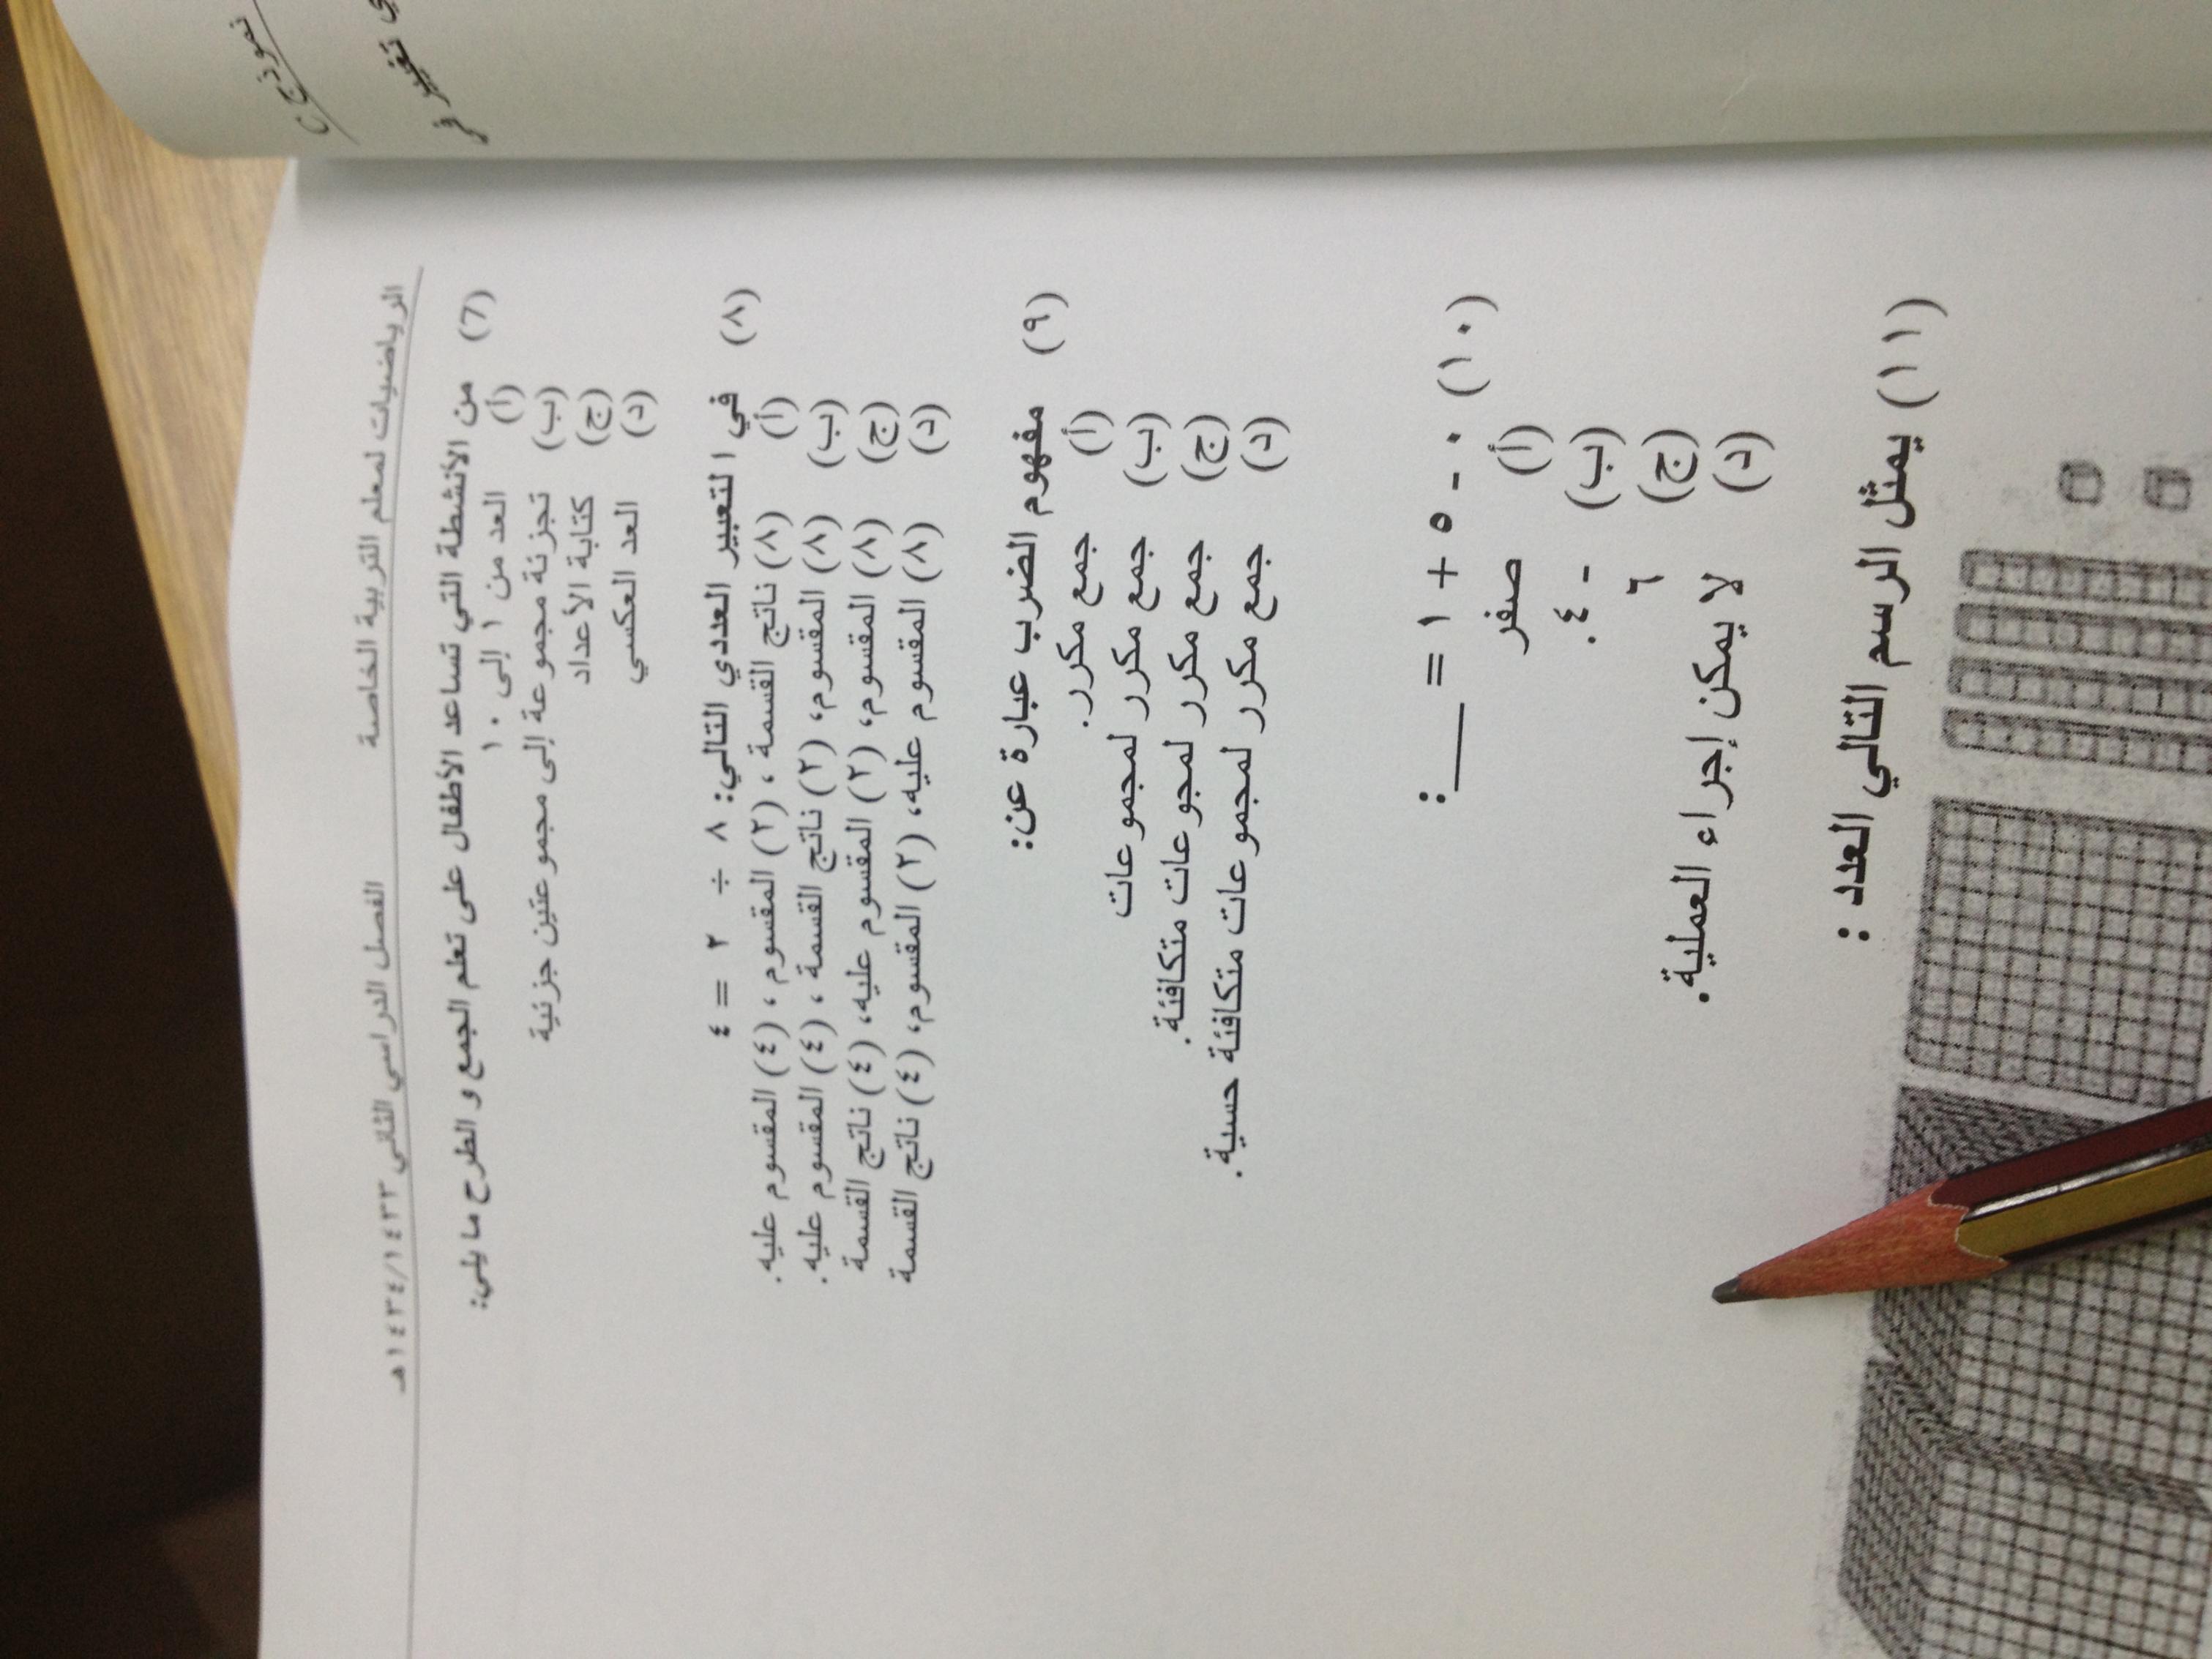 نموذج
الرياضيات لمعلم التربية الخاصة الفصل الدراسي الثاني ١٤٣٤/١٤٣٣هـ
(7) من الأنشطة التي تساعد الأطفال على تعلم الجمع و الطرح ما يلي:
(أ) العد من ١ إلى ١٠
(ب) تجزئة مجموعة إلى مجموعتين جزئية
(ج) كتابة الأعداد
(د) العد العكسي
(٨) في التعبير العددي التالي: ٨ ÷ ٢ = ٤
(أ) (٨) ناتج القسمة ، (٢) المقسوم ، (٤) المقسوم عليه.
(ب) (٨) المقسوم، (٢) ناتج القسمة ، (٤) المقسوم عليه.
(ج) (٨) المقسوم، (٢) المقسوم عليه، (٤) ناتج القسمة
(د) (٨) المقسوم عليه، (٢) المقسوم، (٤) ناتج القسمة
(٩) مفهوم الضرب عبارة عن:
(أ) جمع مكرر.
(ب) جمع مكرر لمجموعات
(ج) جمع مكرر لمجوعات متكافئة.
(د) جمع مكرر لمجموعات متكافئة حسية.
(١٠) ٠ - ٥ + ١ = ___:
(أ) صفر
(ب) - ٤.
(ج) ٦
(د) لا يمكن إجراء العملية.
(١١) يمثل الرسم التالي العدد :